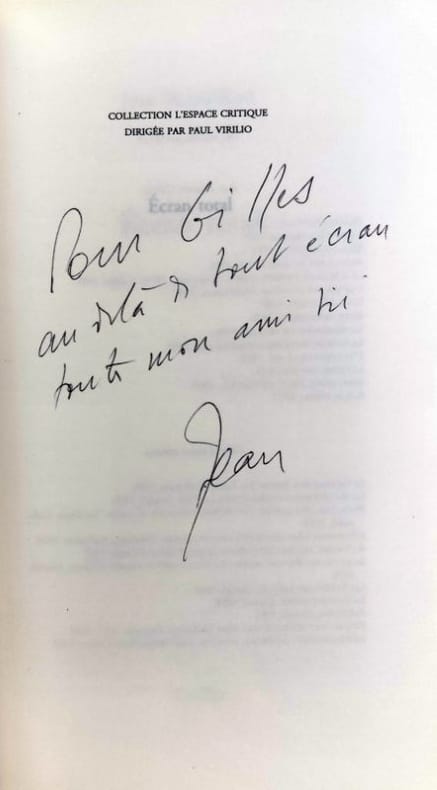 COLLECTION L'ESPACE CRITIQUE
DIRIGÉE PAR PAUL VIRILIO
Écran total
Pour Gilles
au delà de tout écran
toute mon amitié
Jean